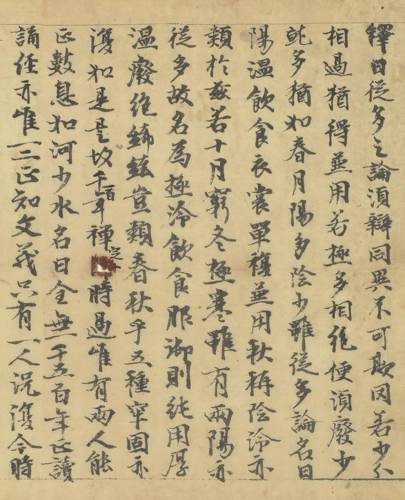 釋曰從多之論須辯同異不可若少分
相過猶得並用若極多相絕便須廢少
就多猶如春月陽多陰少雖從多論名曰
陽溫飲食衣裳單複並用秋稱陰冷亦
類於茲若十月窮冬極寒雖有兩陽亦
從多故名為極冷飲食服御則純用厚
溫廢絕絺豈類春秋乎五種牢固亦
復如是是故千百年禪定時過唯有兩人能
正數息如河少水名曰全無一千五百年正讀
誦經亦唯一二正知文義只有一人況復今時